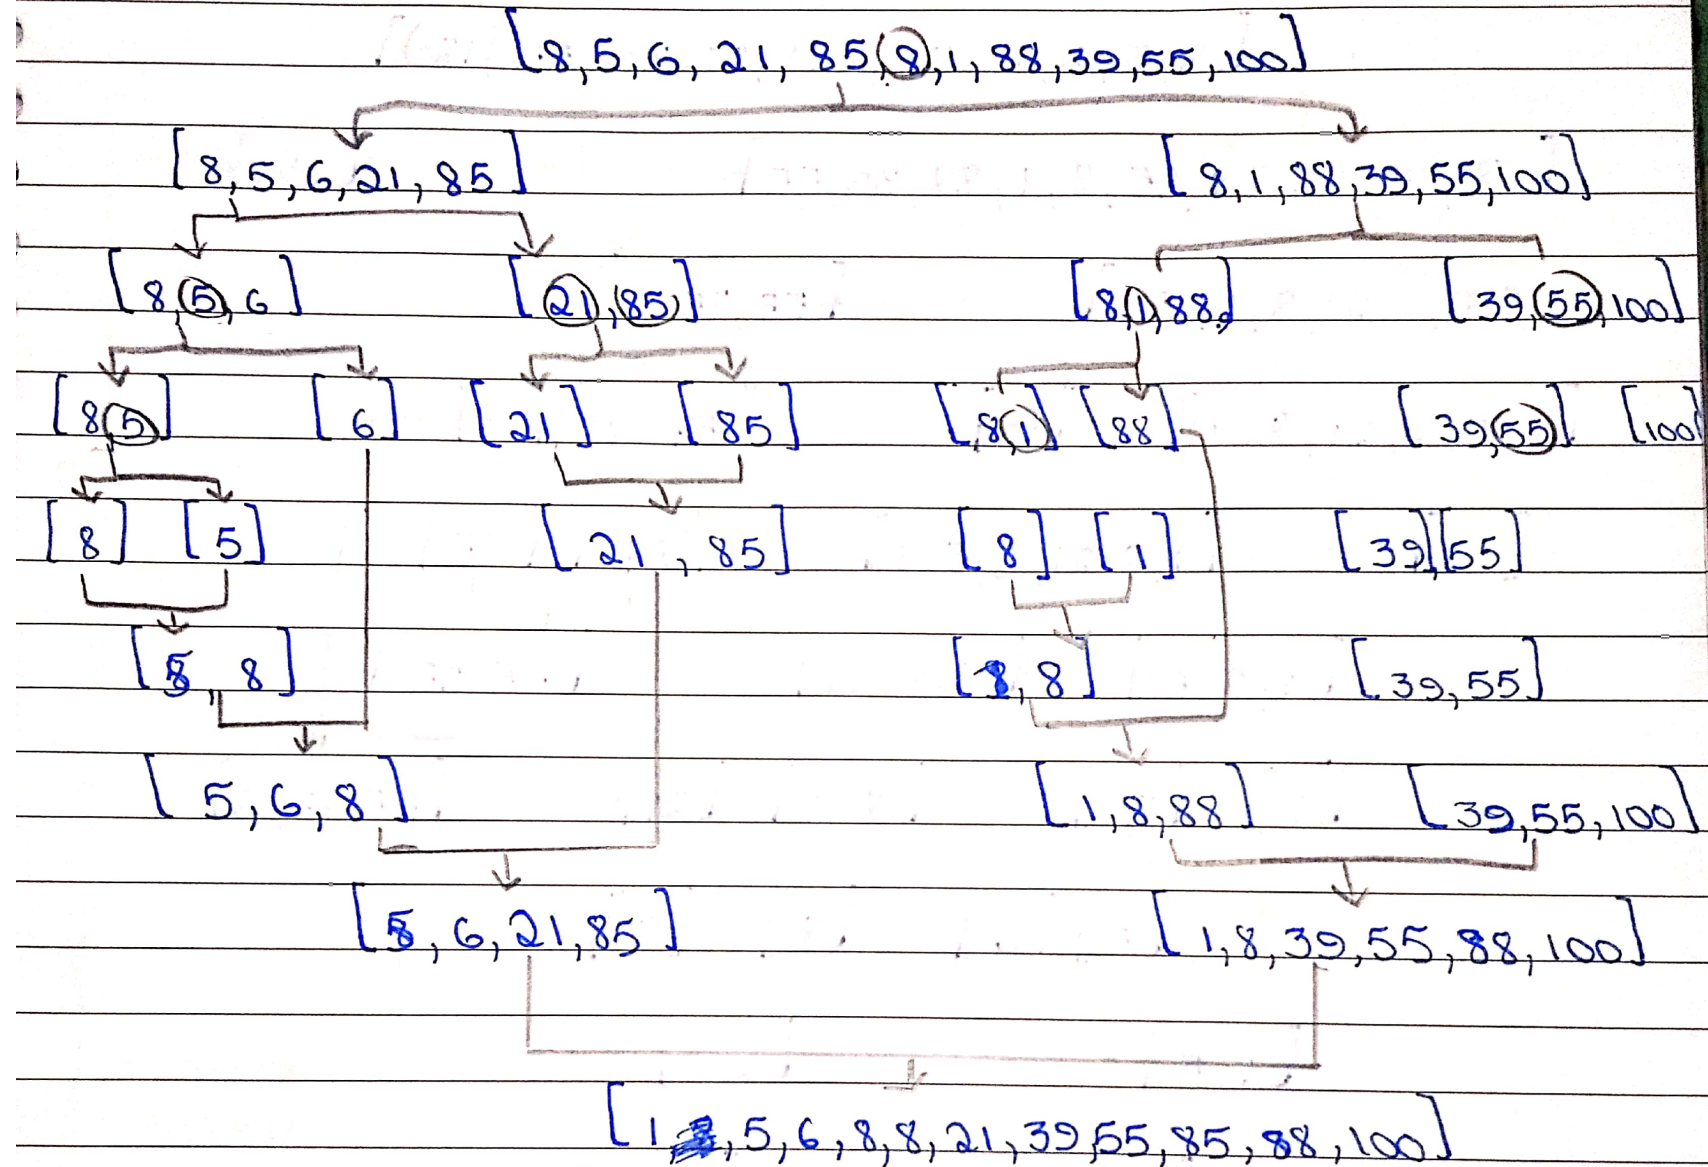 [8,5,6,21,85,8,1,88,39,55,100]
[8,5,6,21,85] [8,1,88,39,55,100]
[8,5,6] [21,85] [8,1,88] [39,55,100]
[8 5] [6] [21] [85] [8,1] [88] [39,55] [100]
[8] [5] [21,85] [8] [1] [39][55]
[5,8] [1,8] [39,55]
[5,6,8] [1,8,88] [39,55,100]
[5,6,21,85] [1,8,39,55,88,100]
[1,5,6,8,8,21,39,55,85,88,100]